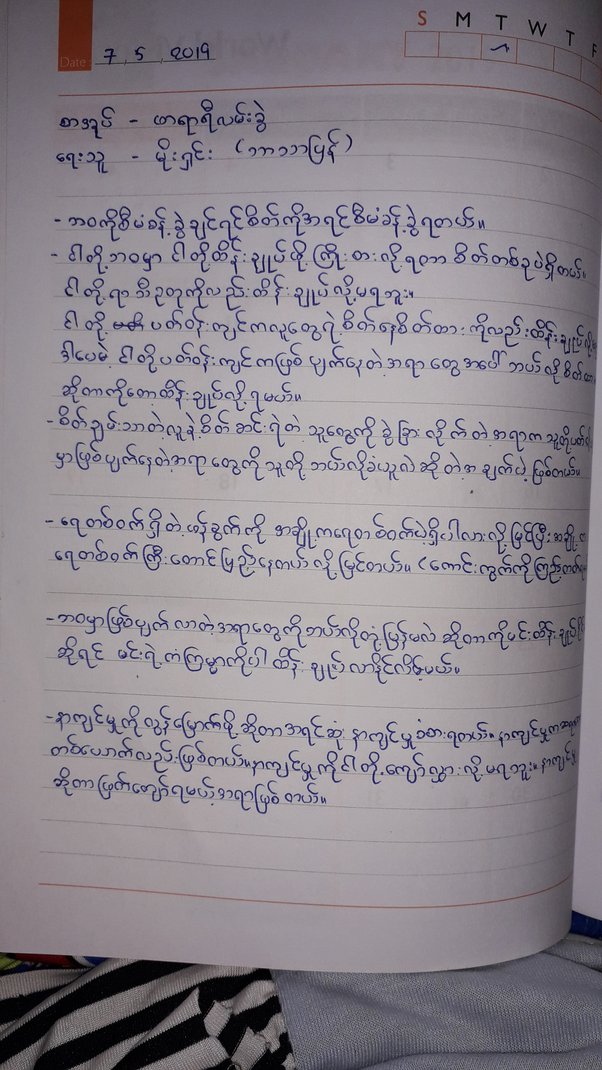 S M T W T F
Date: 7 , 5 , 2019
စာအုပ် - ဖာရာရီလမ်းခွဲ
ရေးသူ - မိုးရှင်း (ဘာသာပြန်)
- ဘဝကိုစီမံခန့်ခွဲချင်ရင်စိတ်ကိုအရင်စီမံခန့်ခွဲရတယ်။
- ငါတို့ဘဝမှာ ငါတို့ထိန်းချုပ်ဖို့ကြိုးစားလို့ရတာ စိတ်တစ်ခုပဲရှိတယ်။
ငါတို့ရာသီဥတုကိုလည်းထိန်းချုပ်လို့မရဘူး။
ငါတို့ ပတ်ဝန်းကျင်ကလူတွေရဲ့စိတ်နေစိတ်ထားကိုလည်းထိန်းချုပ်လို့
ဒါပေမဲ့ ငါတို့ပတ်ဝန်းကျင်ကဖြစ်ပျက်နေတဲ့အရာတွေအပေါ် ဘယ်လိုစိတ်ထား
ဆိုတာကိုတော့ထိန်းချုပ်လို့ရမယ်။
- စိတ်ချမ်းသာတဲ့လူနဲ့စိတ်ဆင်းရဲတဲ့သူတွေကိုခွဲခြားလိုက်တဲ့အရာက သူတို့ပတ်
မှာဖြစ်ပျက်နေတဲ့အရာတွေကိုသူတို့ဘယ်လိုခံယူလဲဆိုတဲ့အချက်ပဲဖြစ်တယ်။
- ရေတစ်ဝက်ရှိတဲ့ဖန်ခွက်ကို အချို့ကရေတစ်ဝက်ပဲရှိပါလားလို့မြင်ပြီးအချို့က
ရေတစ်ဝက်ကြီးတောင်ပြည့်နေတယ်လို့မြင်တယ်။ (ကောင်းကွက်ကိုကြည့်တတ်
- ဘဝမှာဖြစ်ပျက်လာတဲ့အရာတွေကိုဘယ်လိုတုံ့ပြန်မလဲ ဆိုတာကိုမင်းထိန်းချုပ်နိုင်
ဆိုရင် မင်းရဲ့ကံကြမ္မာကိုပါထိန်းချုပ်လာနိုင်လိမ့်မယ်။
- နာကျင်မှုကိုလွန်မြောက်ဖို့ဆိုတာအရင်ဆုံးနာကျင်မှုခံစားရတယ်။ နာကျင်မှုကဆရာ
တစ်ယောက်လည်းဖြစ်တယ်။နာကျင်မှုကိုငါတို့ကျော်လွှားလို့မရဘူး။ နာကျင်မှု
ဆိုတာဖြတ်ကျော်ရမယ့်အရာဖြစ်တယ်။